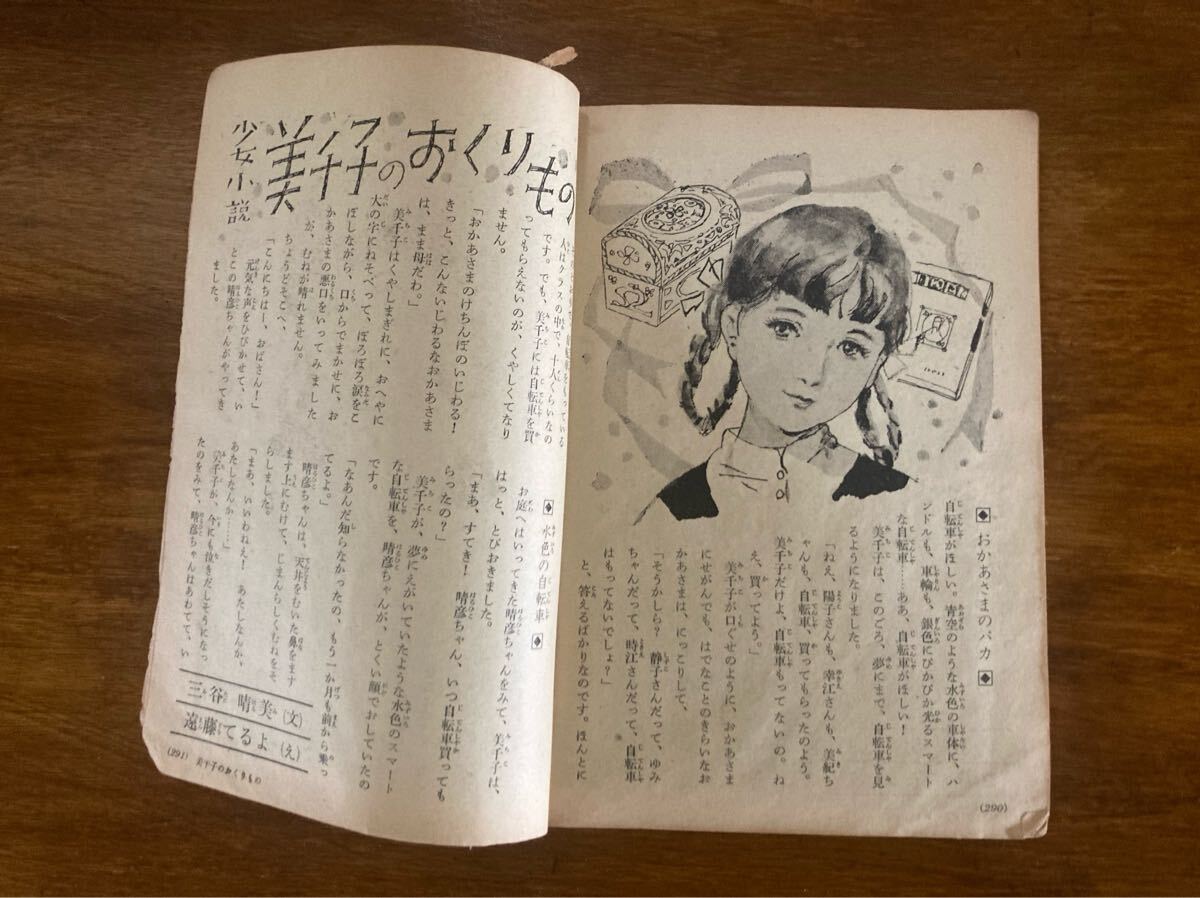 ◆おかあさまのバカ◆
自転車がほしい。青空のような水色の車体に、ハ
ンドルも、車輪も、銀色にぴかぴか光るスマート
な自転車……ああ、自転車がほしい！
美千子は、このごろ、夢にまで、自転車を見
るようになりました。
「ねえ、陽子さんも、幸江さんも、美紀ち
ゃんも、自転車、買ってもらったのよう。
美千子だけよ、自転車もってないの。ね
え、買ってよう。」
美千子が口ぐせのように、おかあさま
にせがんでも、はでなことのきらいなお
かあさまは、にっこりして、
「そうかしら？　静子さんだって、ゆみ
ちゃんだって、時江さんだって、自転車
はもってないでしょ？」
と、答えるばかりなのです。ほんとに
(290)
少女小説
美千子のおくりもの
自転車をもっている
人はクラスの中で、十人くらいなの
です。でも、美千子には自転車を買
ってもらえないのが、くやしくてなり
ません。
「おかあさまのけちんぼのいじわる！
きっと、こんないじわるなおかあさま
は、まま母だわ。」
美千子はくやしまぎれに、おへやに
大の字にねそべって、ぽろぽろ涙をこ
ぼしながら、口からでまかせに、お
かあさまの悪口をいってみました
が、むねが晴れません。
ちょうどそこへ、
「こんにちはー、おばさん！」
元気な声をひびかせて、い
とこの晴彦ちゃんがやってき
ました。
◆水色の自転車◆
お庭へはいってきた晴彦ちゃんをみて、美千子は、
はっと、とびおきました。
「まあ、すてき！　晴彦ちゃん、いつ自転車買っても
らったの？」
美千子が、夢にえがいていたような水色のスマート
な自転車を、晴彦ちゃんが、とくい顔でおしていたの
です。
「なあんだ知らなかったの、もう一か月も前から乗っ
てるよ。」
晴彦ちゃんは、天井をむいた鼻をます
ます上にむけて、じまんらしくむねをそ
らしました。
「まあ、いいわねえ！　あたしなんか、
あたしなんか……」
美千子が、今にも泣きだしそうになっ
たのをみて、晴彦ちゃんはあわてて、い
三谷晴美(文)
遠藤てるよ(え)
(291)　美千子のおくりもの